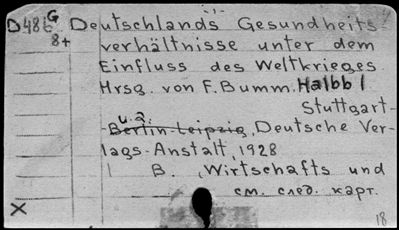 D486 G Deutschlands Gesundheits
8+ verhältnisse unter dem
Einfluss des Weltkrieges
Hrsg. von F. Bumm. Halbb I
Stuttgart-
u.a.
-Berlin-Leipzig, Deutsche Ver-
lags-Anstalt, 1928
B. , Wirtschafts und
см. след. карт.
X
18